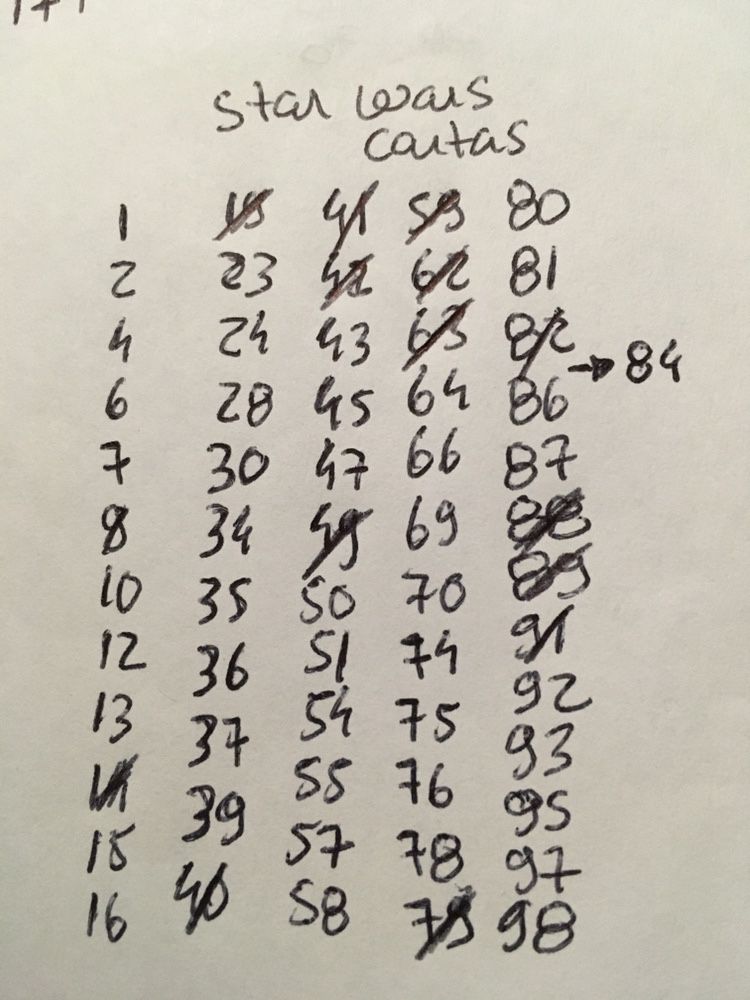 Star Wars
cartas
1 19 41 59 80
2 23 42 62 81
4 24 43 63 82
→ 84
6 28 45 64 86
7 30 47 66 87
8 34 49 69 88
10 35 50 70 89
12 36 51 74 91
13 37 54 75 92
14 39 55 76 93
15 40 57 78 95
16 58 79 97
98